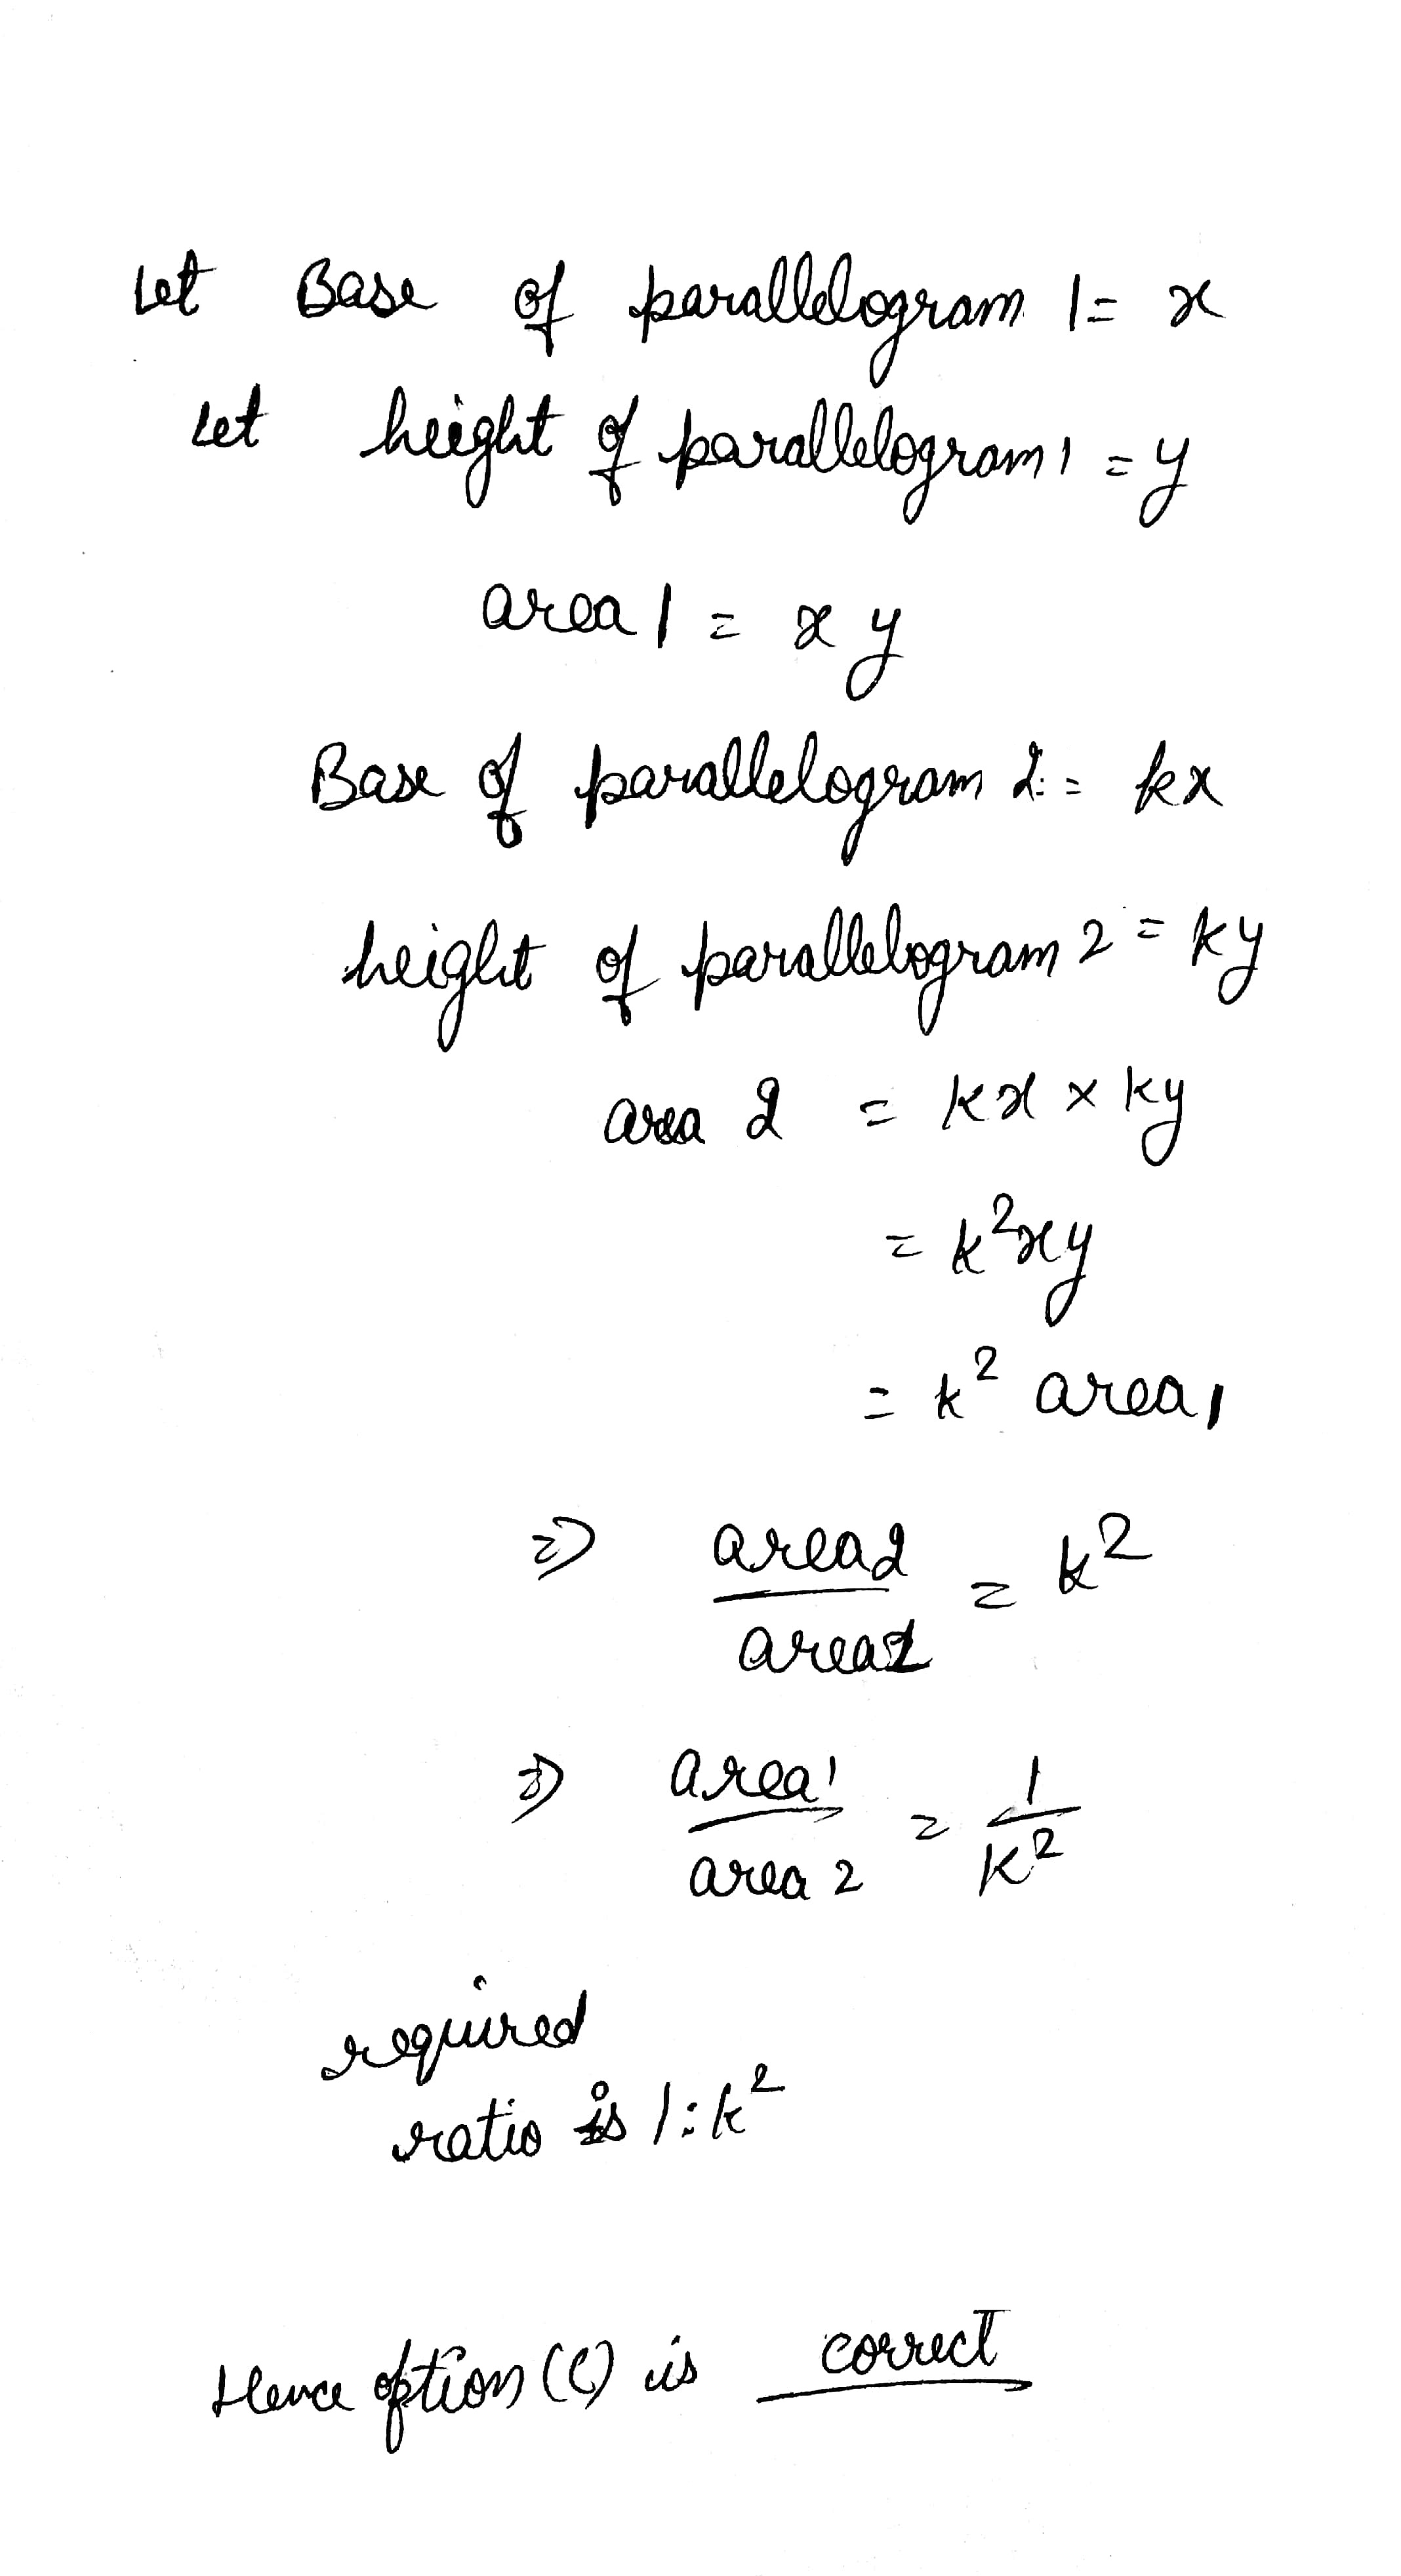 Let Base of parallelogram 1 = x
Let height of parallelogram 1 = y
area 1 = x y
Base of parallelogram 2 = kx
height of parallelogram 2 = ky
area 2 = kx × ky
= k²xy
= k² area 1
⇒ area 2 / area 1 = k²
⇒ area 1 / area 2 = 1 / k²
required
ratio is 1:k²
Hence option (C) is correct